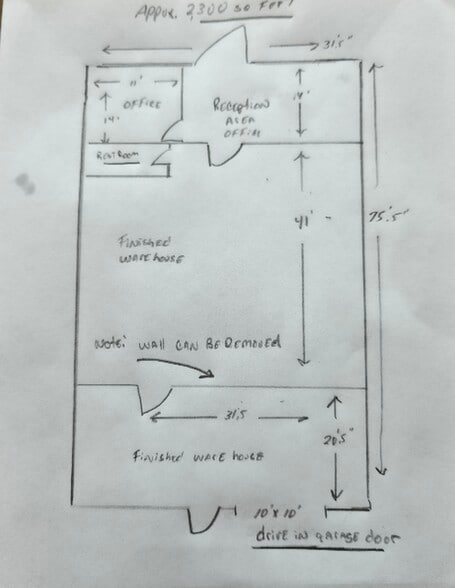 Approx. 2,300 SQ FEET
31'5"
11'
OFFICE
14'
RECEPTION
AREA
OFFICE
14'
RESTROOM
41'
75'.5"
FINISHED
WAREHOUSE
NOTE: WALL CAN BE REMOVED
31,5
20'5"
FINISHED WARE HOUSE
10' x 10'
drive in garage door